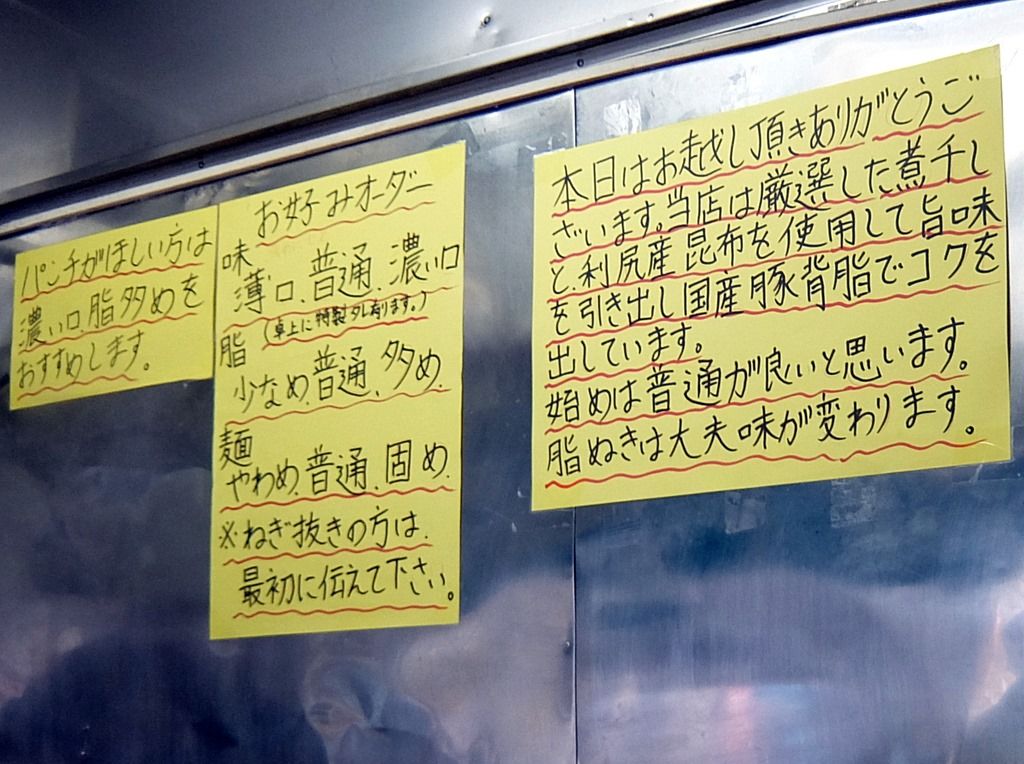 パンチがほしい方は
濃い口、脂多めを
おすすめします。
お好みオーダー
味
薄口、普通、濃い口
(卓上に特製タレ有ります。)
脂
少なめ、普通、多め、
麺
やわめ、普通、固め、
※ねぎ抜きの方は、
最初に伝えて下さい。
本日はお越し頂きありがとうご
ざいます。当店は厳選した煮干し
と、利尻産昆布を使用して旨味
を引き出し国産豚背脂でコクを
出しています。
始めは普通が良いと思います。
脂ぬきは大夫味が変わります。